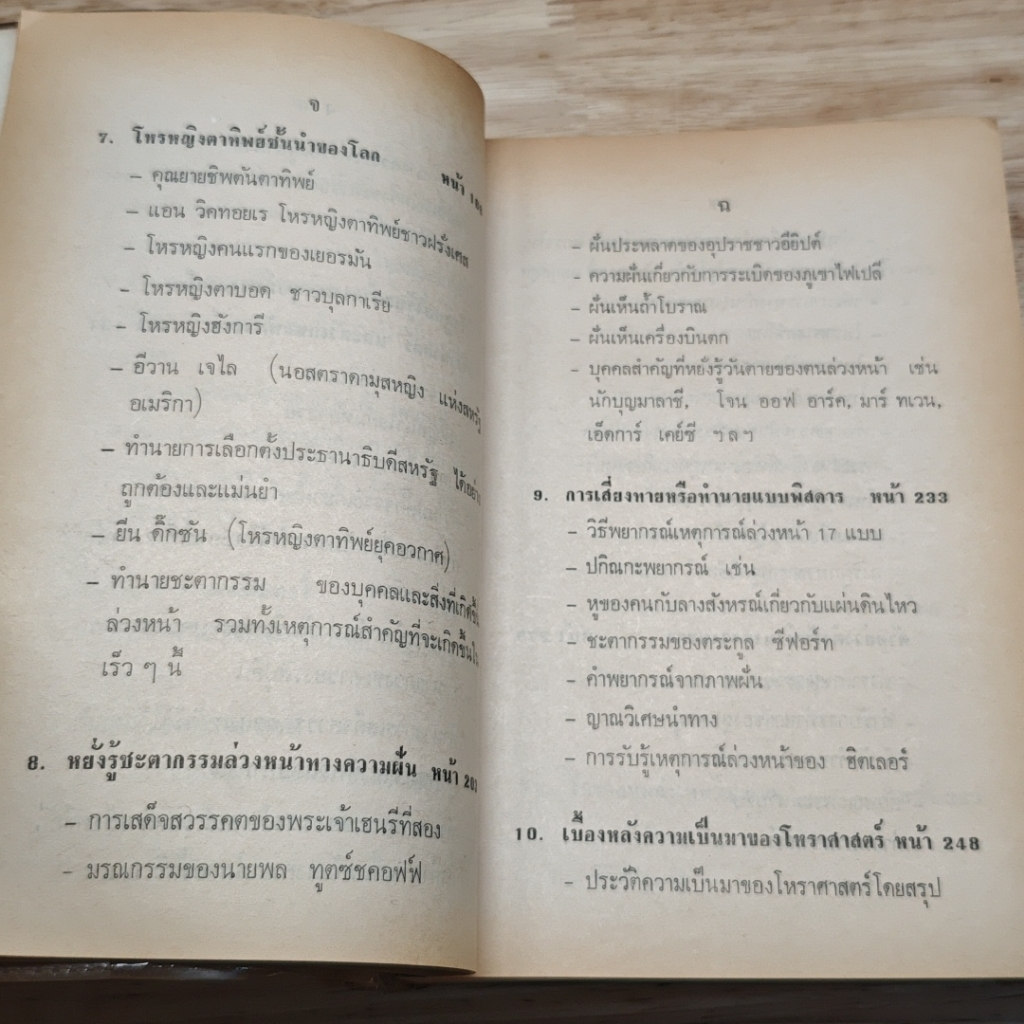 จ
7. โหรหญิงตาทิพย์ชั้นนำของโลก
หน้า
– คุณยายชิพตันตาทิพย์
– แอน วิคทอยเร โหรหญิงตาทิพย์ชาวฝรั่งเศส
– โหรหญิงคนแรกของเยอรมัน
– โหรหญิงตาบอด ชาวบุลกาเรีย
– โหรหญิงฮังการี
– อีวาน เจไล (นอสตราดามุสหญิง แห่งสหรัฐ
อเมริกา)
– ทำนายการเลือกตั้งประธานาธิบดีสหรัฐ ได้อย่าง
ถูกต้องและแม่นยำ
– ยีน ดิ๊กซัน (โหรหญิงตาทิพย์ยุคอวกาศ)
– ทำนายชะตากรรม ของบุคคลและสิ่งที่เกิดขึ้น
ล่วงหน้า รวมทั้งเหตุการณ์สำคัญที่จะเกิดขึ้นใน
เร็ว ๆ นี้
8. หยั่งรู้ชะตากรรมล่วงหน้าทางความฝัน หน้า
– การเสด็จสวรรคตของพระเจ้าเฮนรีที่สอง
– มรณกรรมของนายพล ทูตซ์ชคอฟฟ์
ฉ
– ฝันประหลาดของอุปราชชาวอียิปต์
– ความฝันเกี่ยวกับการระเบิดของภูเขาไฟเปลี
– ฝันเห็นถ้ำโบราณ
– ฝันเห็นเครื่องบินตก
– บุคคลสำคัญที่หยั่งรู้วันตายของตนล่วงหน้า เช่น
นักบุญมาลาชี, โจน ออฟ อาร์ค, มาร์ ทเวน,
เอ็ดการ์ เคย์ซี ฯลฯ
9. การเสี่ยงทายหรือทำนายแบบพิสดาร หน้า 233
– วิธีพยากรณ์เหตุการณ์ล่วงหน้า 17 แบบ
– ปกิณกะพยากรณ์ เช่น
– หูของคนกับลางสังหรณ์เกี่ยวกับแผ่นดินไหว
– ชะตากรรมของตระกูล ซีฟอร์ท
– คำพยากรณ์จากภาพฝัน
– ญาณวิเศษนำทาง
– การรับรู้เหตุการณ์ล่วงหน้าของ ฮิตเลอร์
10. เบื้องหลังความเป็นมาของโหราศาสตร์ หน้า 248
– ประวัติความเป็นมาของโหราศาสตร์โดยสรุป